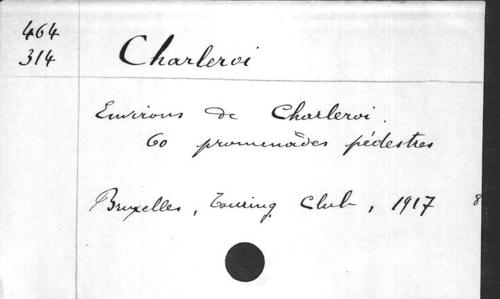 464
314
Charleroi
Environs de Charleroi.
60 promenades pédestres
Bruxelles, Touring Club, 1917 8